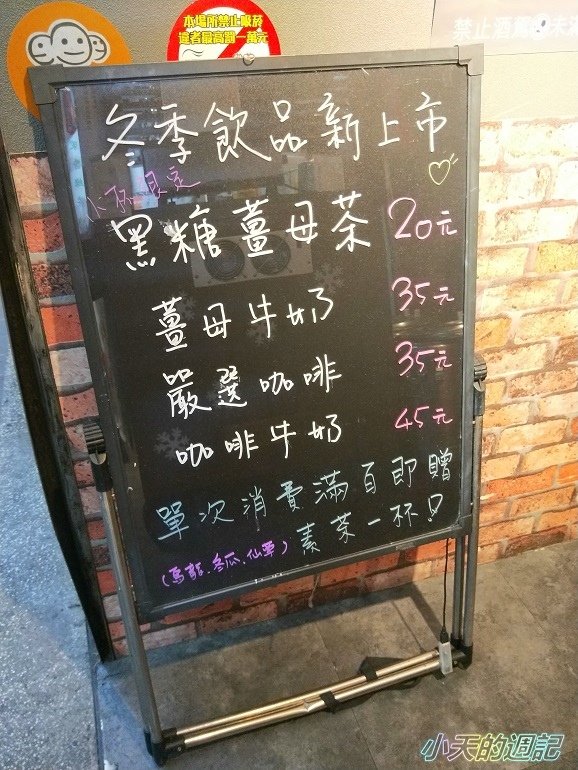 本場所禁止吸菸
違者最高罰一萬元
冬季飲品新上市
小杯限定
黑糖薑母茶 20元
薑母牛奶 35元
嚴選咖啡 35元
咖啡牛奶 45元
單次消費滿百即贈
(烏龍、冬瓜、仙草) 素茶一杯!
小天的週記